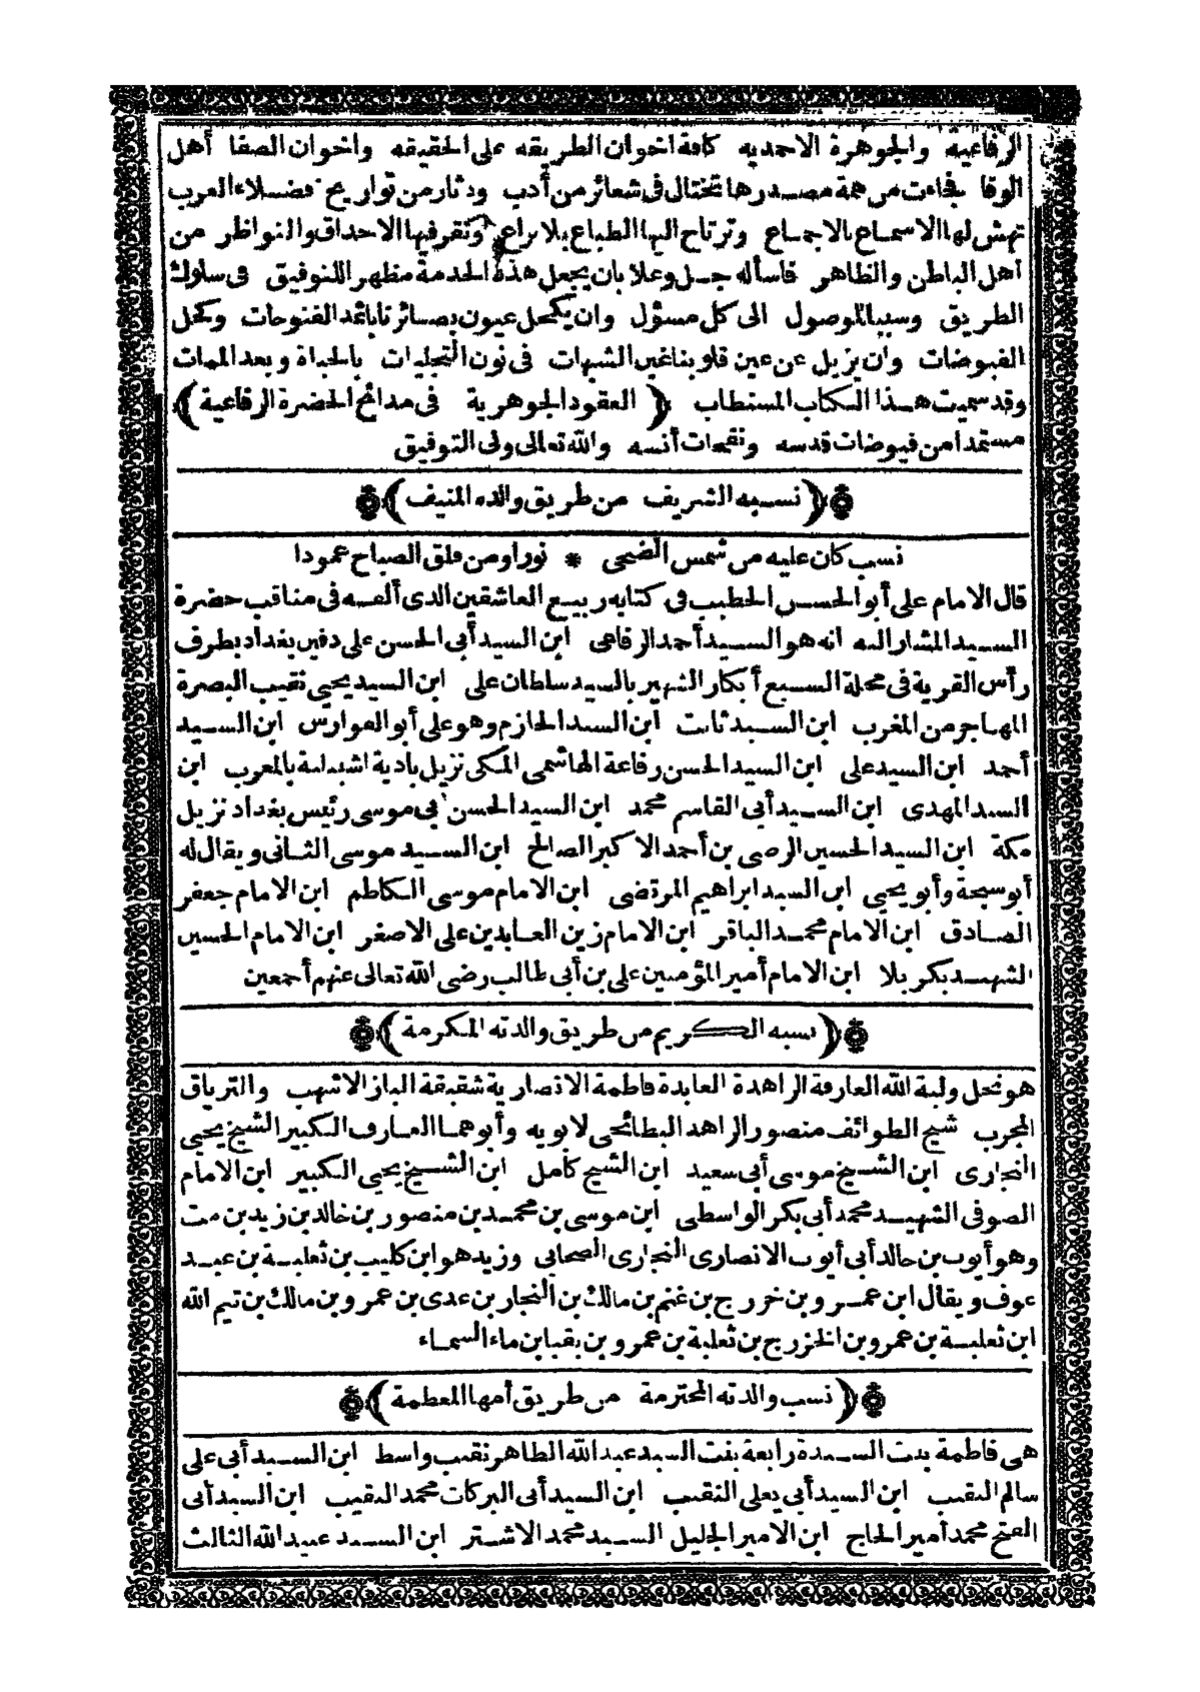 الرفاعية والجوهرة الاحمديه كافة اخوان الطريقه على الحقيقه واخوان الصفا أهل
الوفا فجاءت من همة مصدرها تختال فى شعائر من أدب ودثار من تواريخ فضلاء العرب
تهش لها الاسماع بالاجماع وترتاح اليها الطباع بلا نزاع وتقر فيها الاحداق والنواظر من
أهل الباطن والظاهر فاسأله جل وعلا بان يجعل هذه الخدمة مظهر اللتوفيق فى سلوك
الطريق وسببا للوصول الى كل مسؤل وان يكحل عيون بصائرنا باثمد الفتوحات وكحل
الفيوضات وان يزيل عن عين قلوبنا غين الشبهات فى نون التجليات بالحياة وبعد الممات
وقد سميت هذا الكتاب المستطاب ﴿العقود الجوهرية فى مدائح الحضرة الرفاعية﴾
مستمدا من فيوضات قدسه ونفحات أنسه والله تعالى ولى التوفيق
﴿نسبه الشريف من طريق والده المنيف﴾
نسب كان عليه من شمس الضحى * نورا ومن فلق الصباح عمودا
قال الامام على أبو الحسن الخطيب فى كتابه ربيع العاشقين الذى ألفه فى مناقب حضرة
السيد المشار اليه انه هو السيد أحمد الرفاعى ابن السيد أبى الحسن على دفين بغداد بطرف
رأس القرية فى محلة السبع أبكار الشهير بالسيد سلطان على ابن السيد يحيى نقيب البصرة
المهاجر من المغرب ابن السيد ثابت ابن السيد الحازم وهو على أبو الفوارس ابن السيد
أحمد ابن السيد على ابن السيد الحسن رفاعة الهاشمى المكى نزيل بادية اشبيلية بالمغرب ابن
السيد المهدى ابن السيد أبى القاسم محمد ابن السيد الحسن أبى موسى رئيس بغداد نزيل
مكة ابن السيد الحسين الرضى بن أحمد الاكبر الصالح ابن السيد موسى الثانى ويقال له
أبو سبحة وأبو يحيى ابن السيد ابراهيم المرتضى ابن الامام موسى الكاظم ابن الامام جعفر
الصادق ابن الامام محمد الباقر ابن الامام زين العابدين على الاصغر ابن الامام الحسين
الشهيد بكربلا ابن الامام أمير المؤمنين على بن أبى طالب رضى الله تعالى عنهم أجمعين
﴿نسبه الكريم من طريق والدته المكرمة﴾
هو نجل ولية الله العارفة الزاهدة العابدة فاطمة الانصارية شقيقة الباز الاشهب والترياق
المجرب شيخ الطوائف منصور الزاهد البطائحى لابويه وأبوهما العارف الكبير الشيخ يحيى
النجارى ابن الشيخ موسى أبى سعيد ابن الشيخ كامل ابن الشيخ يحيى الكبير ابن الامام
الصوفى الشهيد محمد أبى بكر الواسطى ابن موسى بن محمد بن منصور بن خالد بن زيد بن مت
وهو أيوب بن خالد أبى أيوب الانصارى النجارى الصحابى وزيد هو ابن كليب بن ثعلبة بن عبد
عوف ويقال ابن عمرو بن خزرج بن غنم بن مالك بن النجار بن عدى بن عمرو بن مالك بن تيم الله
ابن ثعلبة بن عمرو بن الخزرج بن ثعلبة بن عمرو بن بقيا بن ماء السماء
﴿نسب والدته المحترمة من طريق أمها المعظمة﴾
هى فاطمة بنت السيدة رابعة بنت السيد عبد الله الطاهر نقيب واسط ابن السيد أبى على
سالم النقيب ابن السيد أبى يعلى النقيب ابن السيد أبى البركات محمد النقيب ابن السيد أبى
الفتح محمد أمير الحاج ابن الامير الجليل السيد محمد الاشتر ابن السيد عبيد الله الثالث